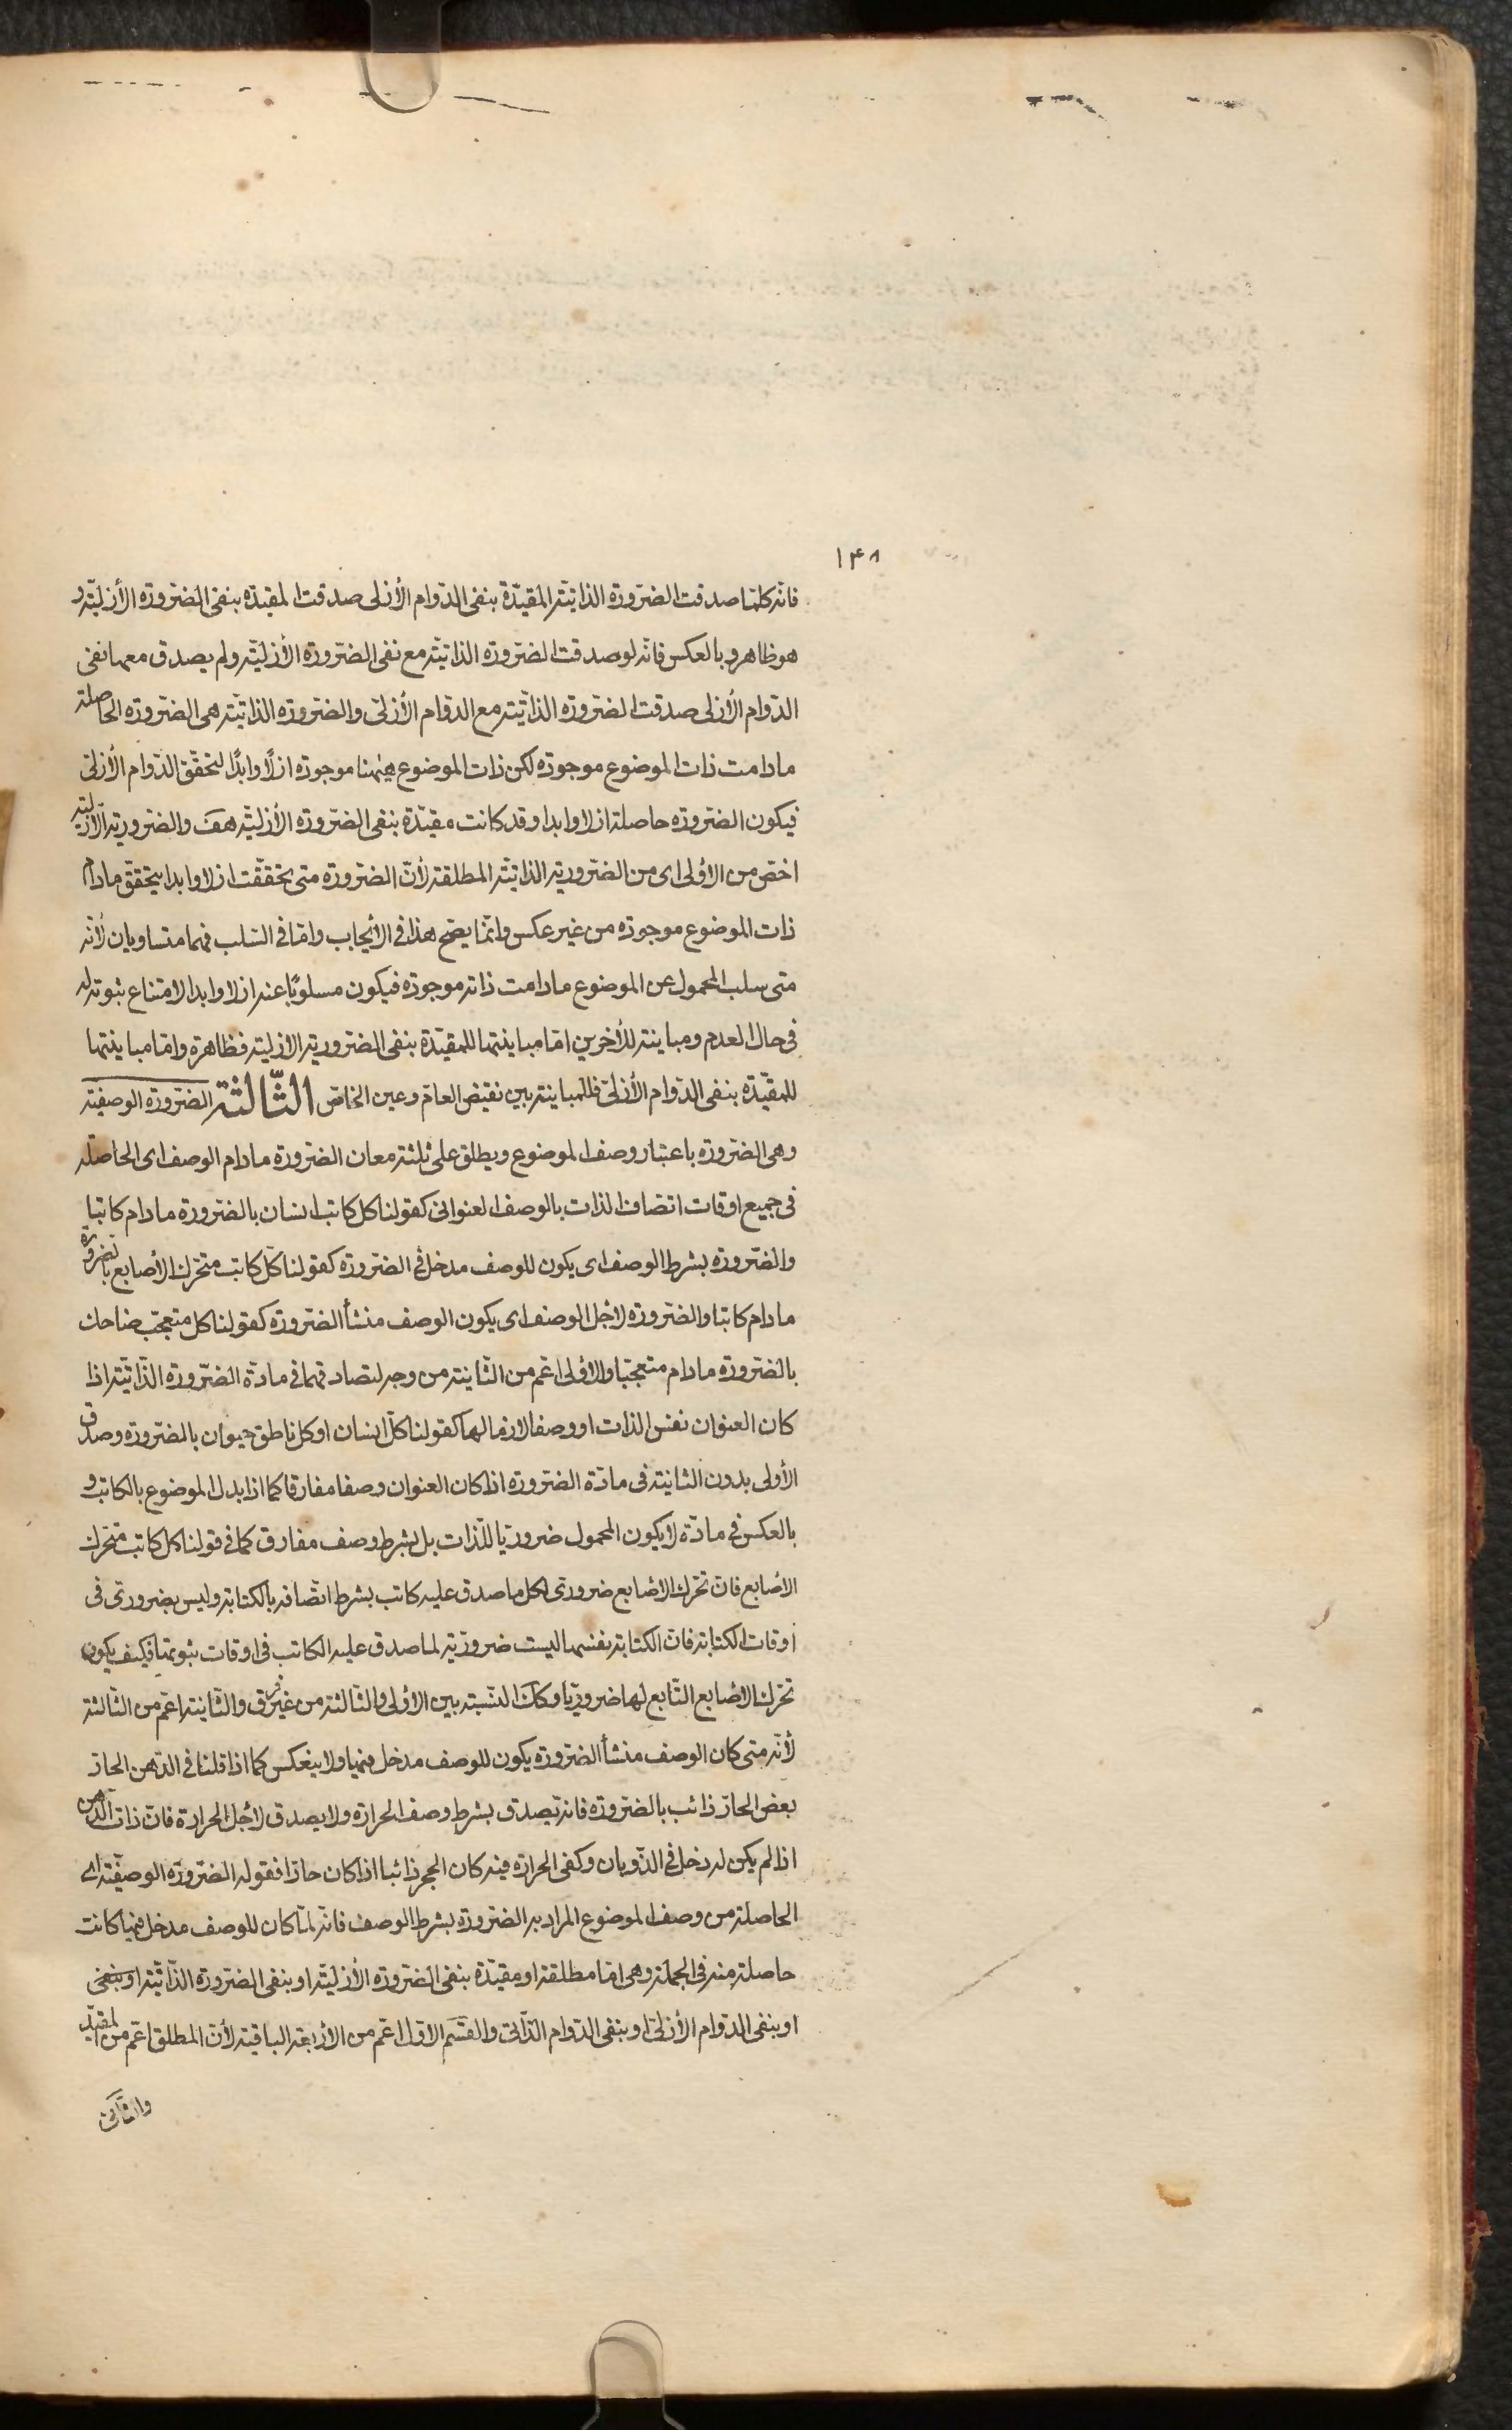 ١۴٨
فانّه كلّما صدقت الضّرورة الذاتيّة المقيّدة بنفى الدّوام الأزلى صدقت المقيّدة بنفى الضّرورة الأزليّة و
هو ظاهر و بالعكس فانّه لو صدقت الضّرورة الذاتيّة مع نفى الضّرورة الأزليّة ولم يصدق معها نفى
الدّوام الأزلى صدقت الضّرورة الذاتيّة مع الدوام الأزلىّ والضّرورة الذاتيّة هى الضّرورة الحاصلة
مادامت ذات الموضوع موجودة لكن ذات الموضوع هيهنا موجودة ازلًا وابدًا لتحقّق الدّوام الأزلىّ
فيكون الضّرورة حاصلة ازلا وابدا وقد كانت مقيّدة بنفى الضّرورة الأزليّة هف والضّروريّة الأزليّة
اخصّ من الأولى اى من الضّروريّة الذاتيّة المطلقة لأنّ الضّرورة متى تحقّقت ازلا وابدا يتحقق مادام
ذات الموضوع موجودة من غير عكس وانّما يصحّ هذا فى الأيجاب وامّا فى السّلب فهما متساويان لأنّه
متى سلب المحمول عن الموضوع مادامت ذاته موجودة فيكون مسلوبًا عنه ازلا وابدا لامتناع ثبوته له
فى حال العدم ومباينة للأخرين امّا مباينتها للمقيّدة بنفى الضّروريّة الازليّة فظاهرة وامّا مباينتها
للمقيّدة بنفى الدّوام الأزلىّ فللمباينة بين نقيض العامّ وعين الخاصّ الثّالثة الضّرورة الوصفيّة
وهى الضّرورة باعتبار وصف الموضوع ويطلق على ثلثة معان الضّرورة مادام الوصف اى الحاصلة
فى جميع اوقات اتّصاف الذات بالوصف العنوانى كقولنا كل كاتب انسان بالضّرورة مادام كاتبا
والضّرورة بشرط الوصف اى يكون للوصف مدخل فى الضّرورة كقولنا كلّ كاتب متحرّك الأصابع بالضرورة
مادام كاتبا والضّرورة لأجل الوصف اى يكون الوصف منشأ الضّرورة كقولنا كل متعجّب ضاحك
بالضّرورة مادام متعجّبا والأولى اعّم من الثّانية من وجه لتصادقهما فى مادّة الضّرورة الذّاتيّة اذا
كان العنوان نفس الذات او وصفا لازما لها كقولنا كلّ انسان او كل ناطق حيوان بالضّرورة وصدق
الأولى بدون الثانية فى مادّة الضّرورة اذا كان العنوان وصفا مفارقا كما اذا بدل الموضوع بالكاتب و
بالعكس فى مادّة لا يكون المحمول ضروريّا للذّات بل بشرط وصف مفارق كما فى قولنا كل كاتب متحرّك
الأصابع فانّ تحرّك الأصابع ضرورىّ لكل ما صدق عليه كاتب بشرط اتّصافه بالكتابة وليس بضرورىّ فى
اوقات الكتابة فانّ الكتابة نفسها ليست ضروريّة لما صدق عليه الكاتب فى اوقات ثبوتها فكيف يكون
تحرّك الأصابع التّابع لها ضروريّا وكك النّسبة بين الأولى والثّالثة من غير فرق والثّانية اعّم من الثّالثة
لأنّه متى كان الوصف منشأ الضّرورة يكون للوصف مدخل فيها ولا ينعكس كما اذا قلنا فى الدّهن الحارّ
بعض الحارّ ذائب بالضّرورة فانه يصدق بشرط وصف الحرارة ولا يصدق لأجل الحرارة فانّ ذات الدّهن
اذا لم يكن له دخل فى الذّوبان وكفى الحرارة فيه كان الحجر ذائبا اذا كان حارّا فقوله الضّرورة الوصفيّة اى
الحاصلة من وصف الموضوع المراد به الضّرورة بشرط الوصف فانّه لمّا كان للوصف مدخل فيها كانت
حاصلة منه فى الجملة وهى امّا مطلقة او مقيّدة بنفى الضّرورة الأزليّة او بنفى الضّرورة الذّاتيّة او بنفى
او بنفى الدّوام الأزلىّ او بنفى الدّوام الذّاتىّ والقسم الاوّل اعّم من الأربعة الباقية لأنّ المطلق اعّم من المقيّد
والثّانى